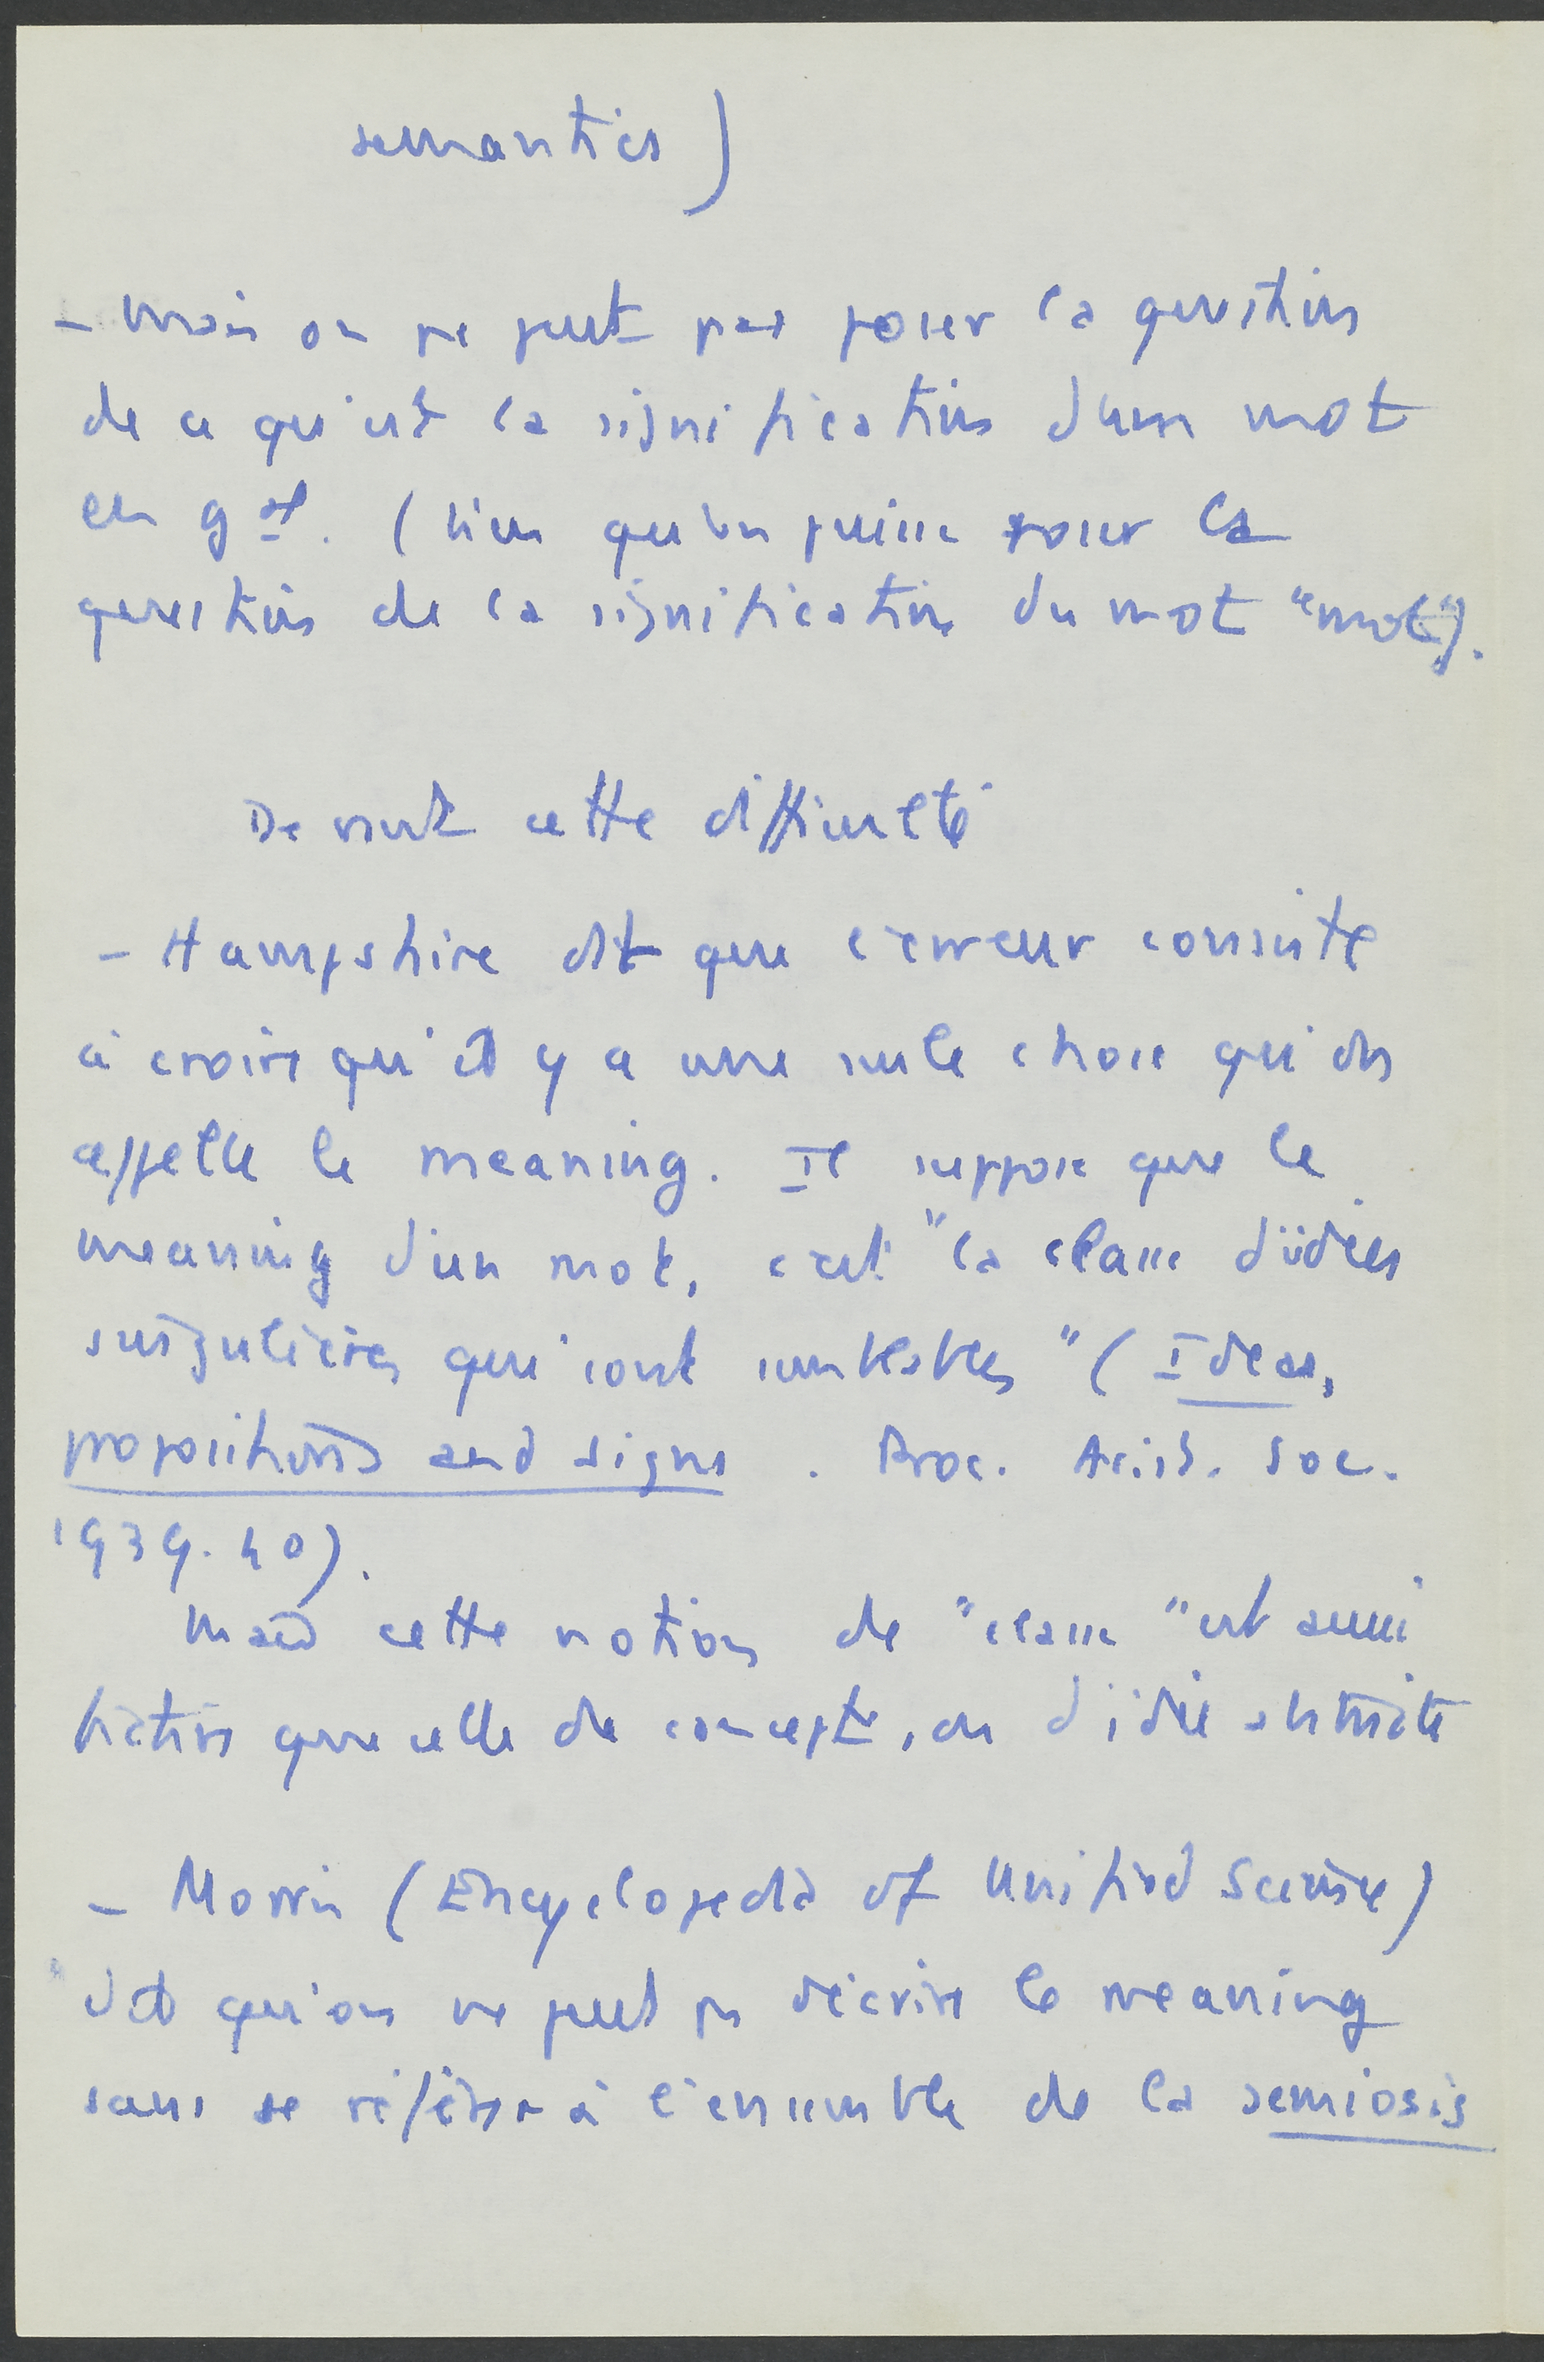 semantics)
- Mais on ne peut pas poser la question
de ce qu'est la signification d'un mot
en gal. (bien qu'on puisse poser la
question de la signification du mot "mot").
Devant cette difficulté
- Hampshire dit que l'erreur consiste
à croire qu'il y a une seule chose qu'on
appelle le meaning. Il suppose que le
meaning d'un mot, c'est "la classe d'idées
singulières qui sont semblables" (Ideas,
propositions and signs. Proc. Arist. Soc.
1939.40).
Mais cette notion de "classe" est aussi
fictive que celle de concept, ou d'idée abstraite
- Morris (Encyclopedia of Unified Science)
dit qu'on ne peut pas décrire le meaning
sans se référer à l'ensemble de la semiosis